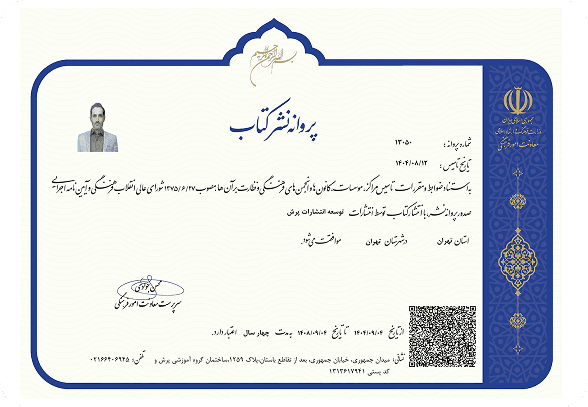 بسم الله الرحمن الرحیم
جمهوری اسلامی ایران
وزارت فرهنگ و ارشاد اسلامی
معاونت امور فرهنگی
پروانه نشر کتاب
شماره پروانه : ۱۳۰۵۰
تاریخ تاسیس : ۱۴۰۴/۰۸/۱۲
به استناد ضوابط و مقررات تاسیس مراکز، موسسات، کانون‌ها و انجمن‌های فرهنگی و نظارت بر آن‌ها مصوب ۱۳۷۵/۶/۲۷ شورای عالی انقلاب فرهنگی و آیین نامه اجرایی
صدور پروانه نشر، با انتشار کتاب توسط انتشارات توسعه انتشارات پرش
استان تهران در شهرستان تهران موافقت می‌شود.
سرپرست معاونت امور فرهنگی
از تاریخ ۱۴۰۴/۰۹/۰۴ تا تاریخ ۱۴۰۸/۰۹/۰۴ به مدت چهار سال اعتبار دارد.
نشانی: میدان جمهوری، خیابان جمهوری، بعد از تقاطع باستان،پلاک ۱۲۵۹،ساختمان گروه آموزشی پرش و تلفن: ۰۲۱۶۶۴۰۶۹۴۵
کد پستی ۱۳۱۳۶۱۷۹۴۱